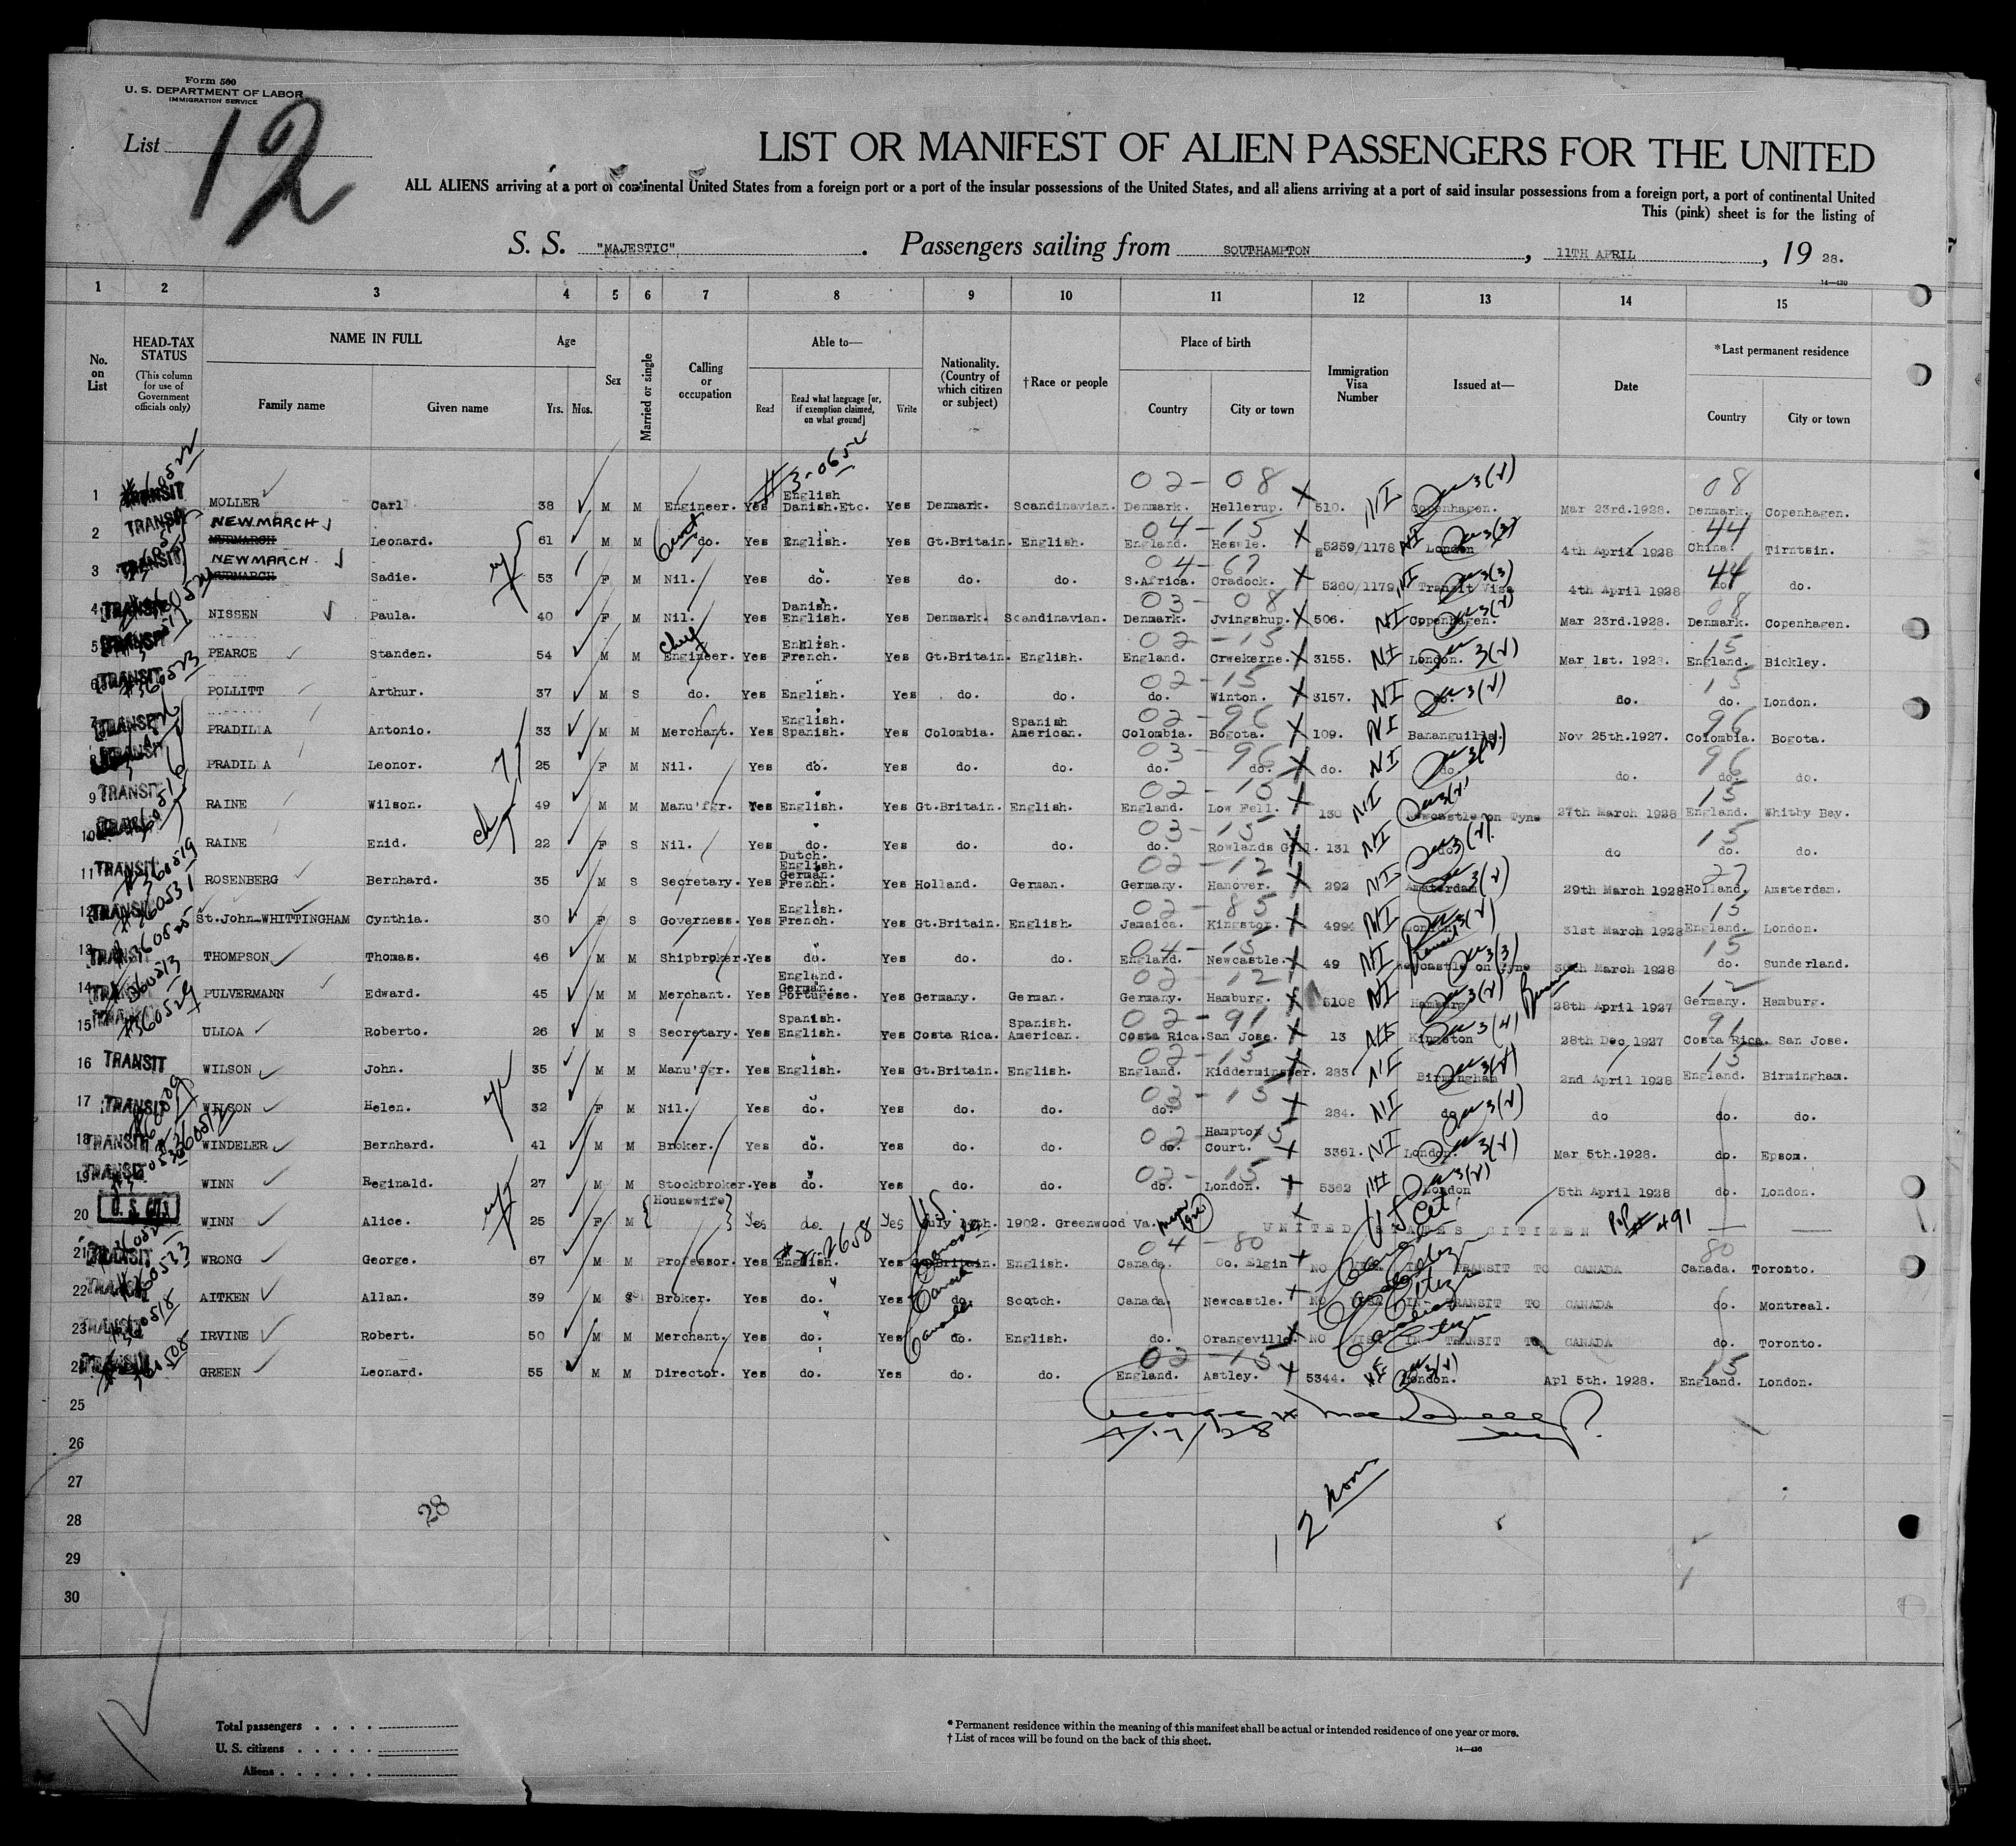 Form 500
U. S. DEPARTMENT OF LABOR
IMMIGRATION SERVICE
List 12
LIST OR MANIFEST OF ALIEN PASSENGERS FOR THE UNITED
ALL ALIENS arriving at a port of continental United States from a foreign port or a port of the insular possessions of the United States, and all aliens arriving at a port of said insular possessions from a foreign port, a port of continental United
This (pink) sheet is for the listing of
S. S. "MAJESTIC". Passengers sailing from SOUTHAMPTON, 11TH APRIL, 19 28.
14—430
1 2 3 4 5 6 7 8 9 10 11 12 13 14 15
No. on List
HEAD-TAX STATUS (This column for use of Government officials only)
NAME IN FULL Family name Given name
Age Yrs. Mos.
Sex
Married or single
Calling or occupation
Able to— Read Read what language [or, if exemption claimed, on what ground] Write
Nationality. (Country of which citizen or subject)
†Race or people
Place of birth Country City or town
Immigration Visa Number
Issued at—
Date
*Last permanent residence Country City or town
#3-065
1 TRANSIT MOLLER Carl 38 M M Engineer. Yes English Danish.Etc. Yes Denmark. Scandinavian. 02-08 Denmark. Hellerup. 510. NI Copenhagen. Mar 23rd.1928. 08 Denmark. Copenhagen.
2 TRANSIT NEWMARCH MURMARCH Leonard. 61 M M do. Yes English. Yes Gt.Britain. English. 04-15 England. Hessle. 5259/1178 NI London 4th April 1928 44 China. Tirntsin.
3 TRANSIT NEWMARCH MURMARCH Sadie. 53 F M Nil. Yes do. Yes do. do. 04-67 S.Africa. Cradock. 5260/1179 NI Transit Visa 4th April 1928 44 do. do.
4 TRANSIT NISSEN Paula. 40 F M Nil. Yes Danish. English. Yes Denmark. Scandinavian. 03-08 Denmark. Jvingshup. 506. NI Copenhagen. Mar 23rd.1928. 08 Denmark. Copenhagen.
5 TRANSIT PEARCE Standen. 54 M M Engineer. Yes English. French. Yes Gt.Britain. English. 02-15 England. Crwekerne. 3155. NI London. Mar 1st. 1928. 15 England. Bickley.
6 TRANSIT POLLITT Arthur. 37 M S do. Yes English. Yes do. do. 02-15 do. Winton. 3157. NI do. do. 15 do. London.
7 TRANSIT PRADILLA Antonio. 33 M M Merchant. Yes English. Spanish. Yes Colombia. Spanish American. 02-96 Colombia. Bogota. 109. NI Bananguilla. Nov 25th.1927. 96 Colombia. Bogota.
8 TRANSIT PRADILLA Leonor. 25 F M Nil. Yes do. Yes do. do. 03-96 do. do. do. NI do. do. 96 do. do.
9 TRANSIT RAINE Wilson. 49 M M Manu'fgr. Yes English. Yes Gt.Britain. English. 02-15 England. Low Fell. 130 NI Newcastle on Tyne 27th March 1928 15 England. Whitby Bay.
10 RAINE Enid. 22 F S Nil. Yes do. Yes do. do. 03-15 do. Rowlands Gill. 131 NI do. do 15 do. do.
11 TRANSIT ROSENBERG Bernhard. 35 M S Secretary. Yes Dutch. English. German. French. Yes Holland. German. 02-12 Germany. Hanover. 292 NI Amsterdam 29th March 1928 27 Holland. Amsterdam.
12 TRANSIT St.John-WHITTINGHAM Cynthia. 30 F S Governess. Yes English. French. Yes Gt.Britain. English. 02-85 Jamaica. Kingston. 4994 NI London. 31st March 1928 15 England. London.
13 TRANSIT THOMPSON Thomas. 46 M M Shipbroker. Yes do. Yes do. do. 04-15 England. Newcastle. 49 NI Newcastle on Tyne 30th March 1928 15 do. Sunderland.
14 TRANSIT PULVERMANN Edward. 45 M M Merchant. Yes England. German. Portugese. Yes Germany. German. 02-12 Germany. Hamburg. 5108 NI Hamburg 28th April 1927 12 Germany. Hamburg.
15 ULLOA Roberto. 26 M S Secretary. Yes Spanish. English. Yes Costa Rica. Spanish. American. 02-91 Costa Rica. San Jose. 13 NI Kingston 28th Dec 1927 91 Costa Rica. San Jose.
16 TRANSIT WILSON John. 35 M M Manu'fgr. Yes English. Yes Gt.Britain. English. 02-15 England. Kidderminster. 283 NI Birmingham 2nd April 1928 15 England. Birmingham.
17 TRANSIT WILSON Helen. 32 F M Nil. Yes do. Yes do. do. 03-15 do. 284. NI do do do. do.
18 TRANSIT WINDELER Bernhard. 41 M M Broker. Yes do. Yes do. do. 02-15 do. Hampton Court. 3361. NI London. Mar 5th.1928. do. Epsom.
19 TRANSIT WINN Reginald. 27 M M Stockbroker. Yes do. Yes do. do. 02-15 do. London. 5362 NI London 5th April 1928 do. London.
20 U. S. CIT WINN Alice. 25 F M {Housewife} Yes do. Yes U.S. July 1902. Greenwood Va. UNITED STATES CITIZEN US Cit. 491
21 TRANSIT WRONG George. 67 M M Professor. Yes English. 2658 Yes Gt.Britain. Canada English. 04-80 Canada. Co. Elgin NO VISA IN TRANSIT TO CANADA 80 Canada. Toronto.
22 TRANSIT AITKEN Allan. 39 M S Broker. Yes do. Yes do. Canada Scotch. Canada. Newcastle. NO VISA IN TRANSIT TO CANADA do. Montreal.
23 TRANSIT IRVINE Robert. 50 M M Merchant. Yes do. Yes do. Canada English. do. Orangeville NO VISA IN TRANSIT TO CANADA do. Toronto.
24 TRANSIT GREEN Leonard. 55 M M Director. Yes do. Yes do. do. 02-15 England. Astley. 5344. London. Apl 5th. 1928. 15 England. London.
25
4/17/28
26
27
28
28
29
30
2 noon
Total passengers . . . .
U. S. citizens . . . . .
Aliens . . . . . .
* Permanent residence within the meaning of this manifest shall be actual or intended residence of one year or more.
† List of races will be found on the back of this sheet.
14—430